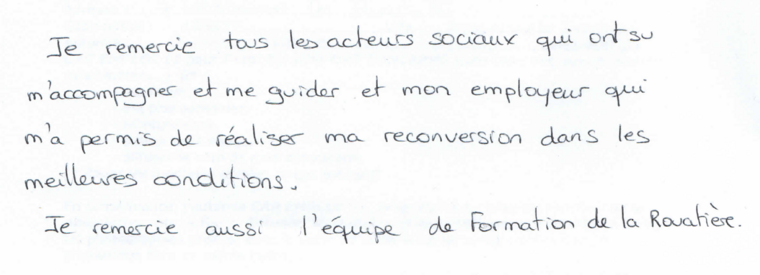 Je remercie tous les acteurs sociaux qui ont su
m'accompagner et me guider et mon employeur qui
m'a permis de réaliser ma reconversion dans les
meilleures conditions.
Je remercie aussi l'équipe de Formation de la Rouatière.